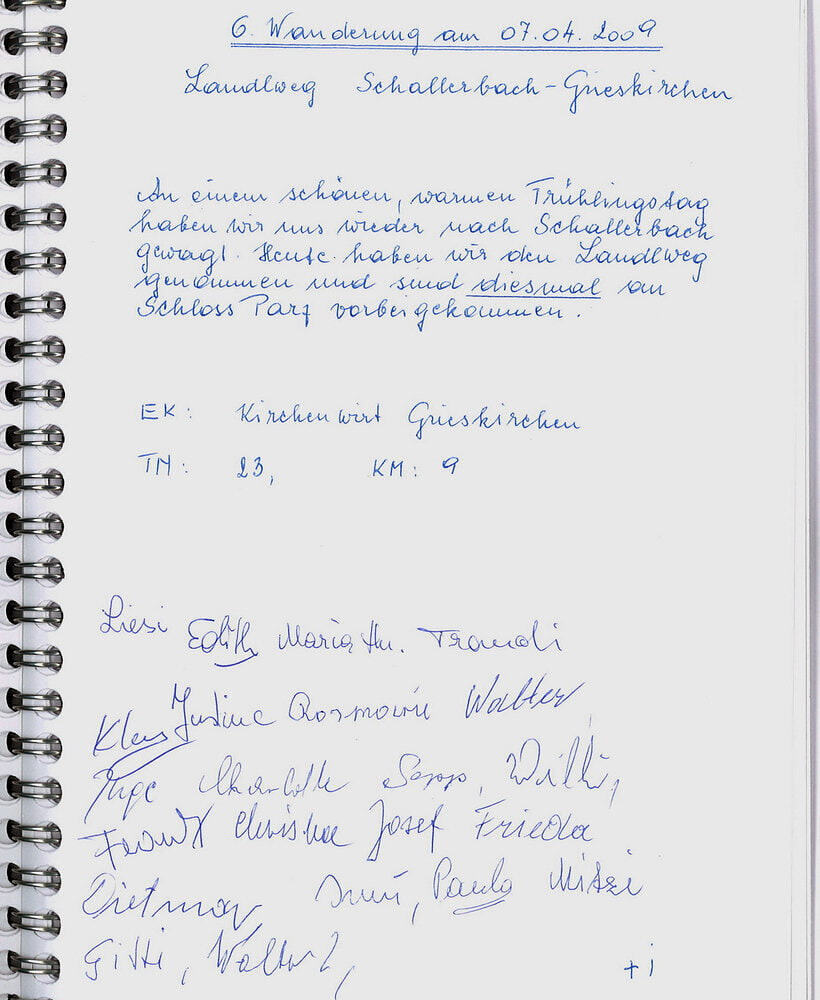 6. Wanderung am 07.04.2009
Landlweg Schallerbach-Grieskirchen
An einem schönen, warmen Frühlingstag
haben wir uns wieder nach Schallerbach
gewagt. Heute haben wir den Landlweg
genommen und sind diesmal an
Schloss Parz vorbeigekommen.
EK: Kirchenwirt Grieskirchen
TN: 23, KM: 9
Liesi Edith Maria Hu. Traudi
Klaus Justine Rosmarie Walter
Inge Charlotte Sepp, Willi,
Franz Christine Josef Frieda
Dietmar, Paula Mitzi
Gitti, Walter 2,
+ i